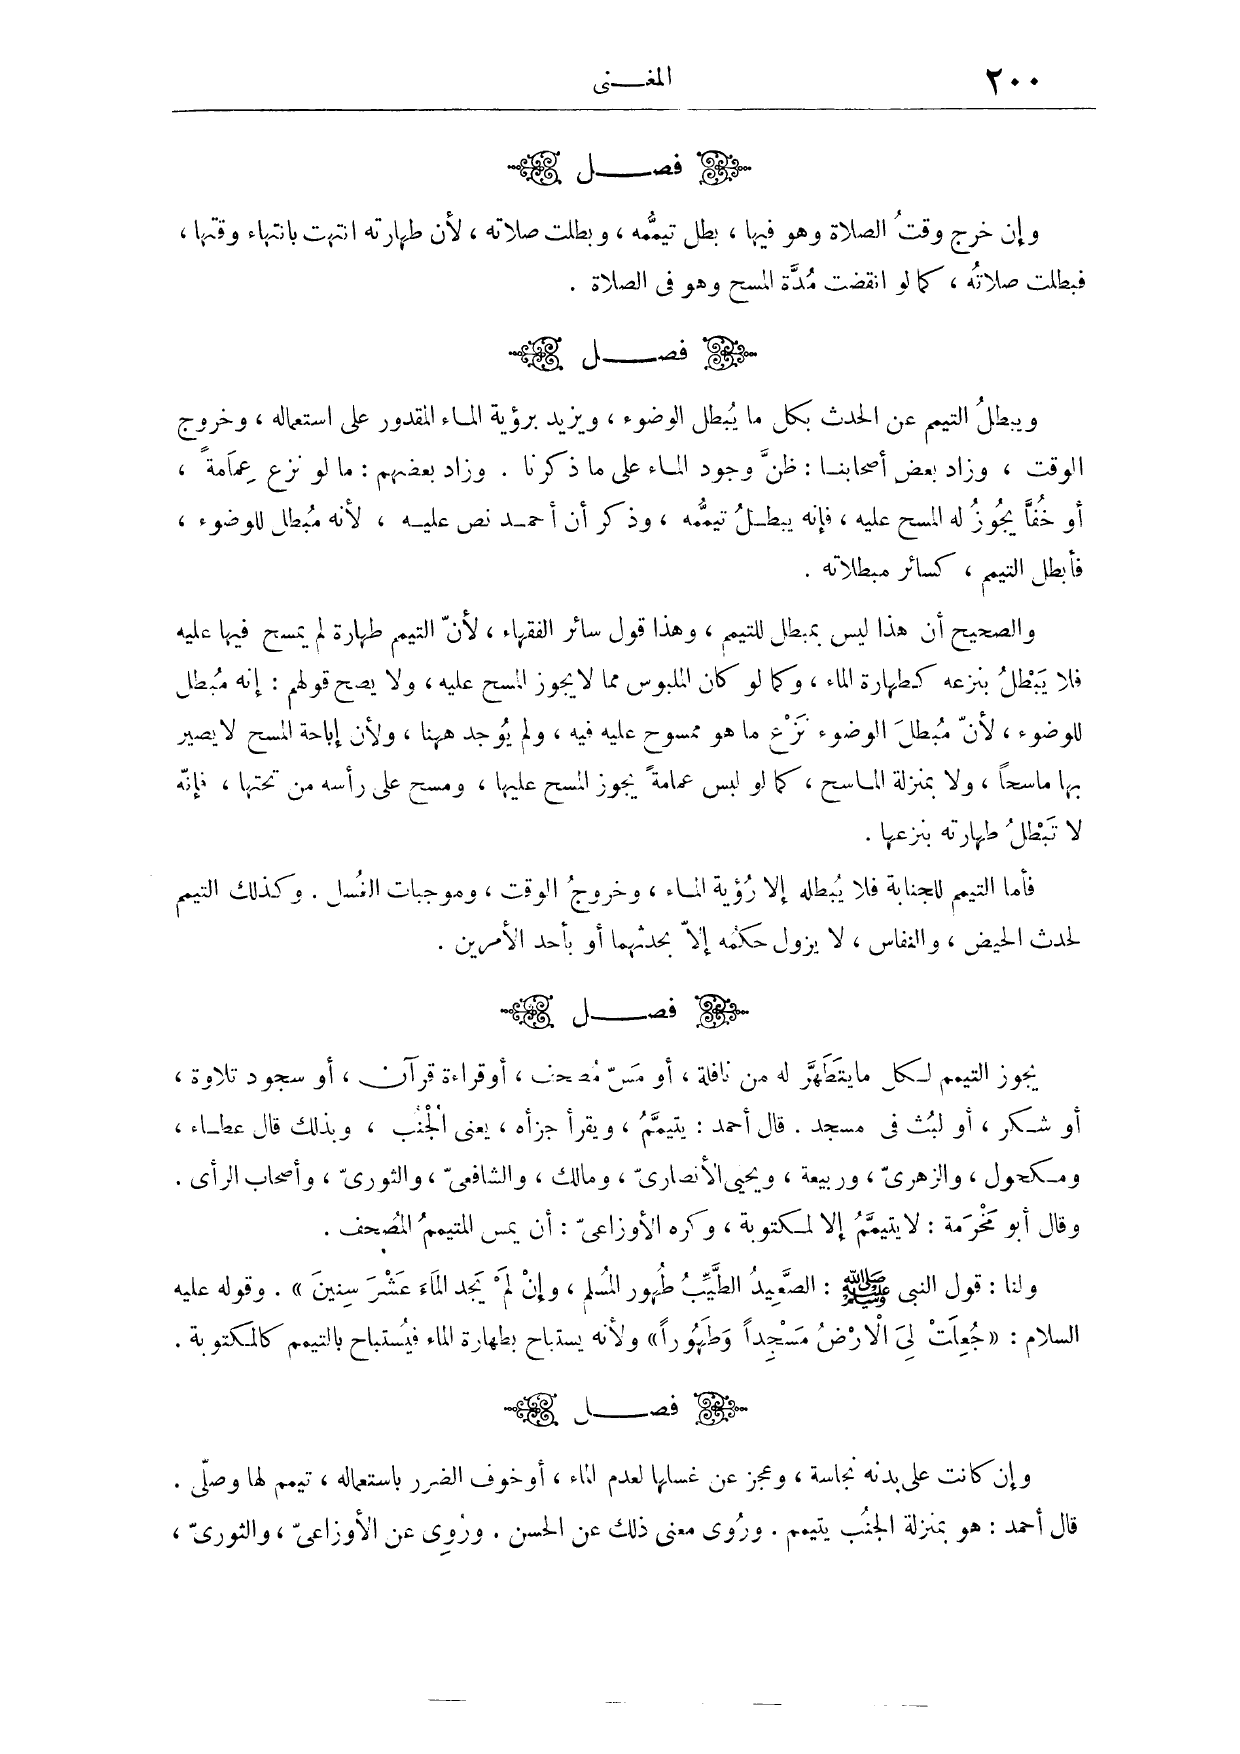 ٢٠٠
المغـــنى
فصــــل
وإن خرج وقتُ الصلاة وهو فيها ، بطل تيمُّمه ، وبطلت صلاته ، لأن طهارته انتهت بانتهاء وقتها ،
فبطلت صلاتُه ، كما لو انقضت مُدَّة المسح وهو فى الصلاة .
فصــــل
ويبطلُ التيمم عن الحدث بكل ما يُبطل الوضوء ، ويزيد برؤية المـاء المقدور على استعماله ، وخروج
الوقت ، وزاد بعض أصحابنـا : ظنَّ وجود المـاء على ما ذكرنا . وزاد بعضهم : ما لو نزع عِمَامةً ،
أو خُفًّا يجُوزُ له المسح عليه ، فإنه يبطـلُ تيمُّمه ، وذكر أن أحمـد نص عليـه ، لأنه مُبطل للوضوء ،
فأبطل التيمم ، كسائر مبطلاته .
والصحيح أن هذا ليس بمبطل للتيمم ، وهذا قول سائر الفقهاء ، لأنّ التيمم طهارة لم يمسح فيها عليه
فلا يَبْطلُ بنزعه كطهارة الماء ، وكما لو كان الملبوس مما لا يجوز المسح عليه ، ولا يصح قولهم : إنه مُبطل
للوضوء ، لأنّ مُبطلَ الوضوء نَزْع ما هو ممسوح عليه فيه ، ولم يُوجد ههنا ، ولأن إباحة المسح لا يصير
بها ماسحاً ، ولا بمنزلة المـاسح ، كما لو لبس عمامةً يجوز المسح عليها ، ومسح على رأسه من تحتها ، فإنّه
لا تَبْطلُ طهارته بنزعها .
فأما التيمم للجنابة فلا يُبطله إلا رُؤية المـاء ، وخروجُ الوقت ، وموجبات الغُسل . وكذلك التيمم
لحدث الحيض ، والنفاس ، لا يزول حكمُه إلاّ بحدثهما أو بأحد الأمرين .
فصــــل
يجوز التيمم لـكل ما يتَطَهَّر له من نافلة ، أو مَسّ مُصحف ، أو قراءة قرآن ، أو سجود تلاوة ،
أو شـكر ، أو لبُث فى مسجد . قال أحمد : يتيمَّمُ ، ويقرأ جزأه ، يعنى الْجُنُب ، وبذلك قال عطـاء ،
ومـكحول ، والزهرىّ ، وربيعة ، ويحيى الأنصارىّ ، ومالك ، والشافعىّ ، والثورىّ ، وأصحاب الرأى .
وقال أبو مَخْرَمة : لا يتيمَّمُ إلا لمـكتوبة ، وكره الأوزاعىّ : أن يمس المتيممُ المُصحف .
ولنا : قول النبى ﷺ : الصَّعِيدُ الطَّيِّبُ طُهور المُسلم ، وإنْ لَمْ يَجد المَاءَ عَشْرَ سِنِينَ » . وقوله عليه
السلام : «جُعِلَتْ لِىَ الْارْضُ مَسْجِداً وَطَهُوراً» ولأنه يستباح بطهارة الماء فيُستباح بالتيمم كالمـكتوبة .
فصــــل
وإن كانت على بدنه نجاسة ، وعجز عن غسلها لعدم الماء ، أو خوف الضرر باستعماله ، تيمم لها وصلّى .
قال أحمد : هو بمنزلة الجنُب يتيمم . ورُوى معنى ذلك عن الحسن . ورُوِى عن الأوزاعىّ ، والثورىّ ،